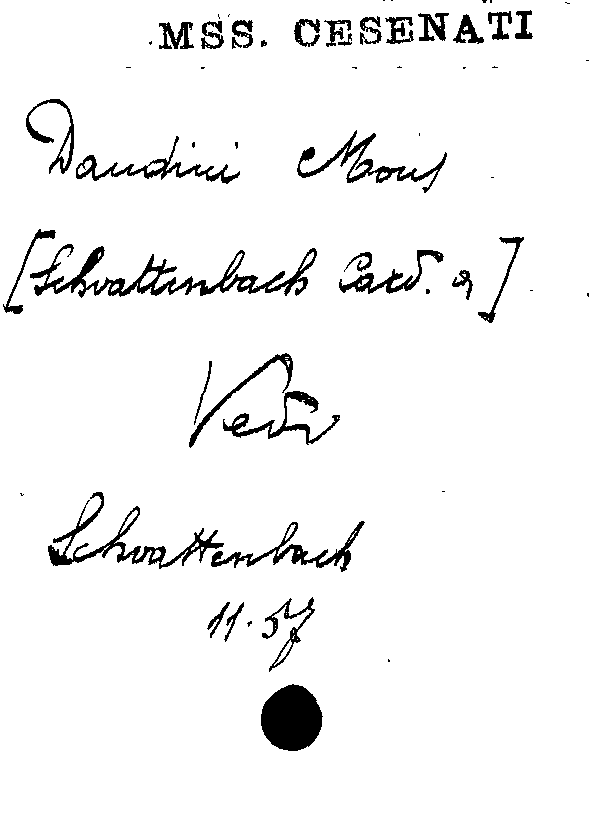 MSS. CESENATI
Dandini Mons
[Schrattenbach Card. a]
Vedi
Schrattenbach
11.57